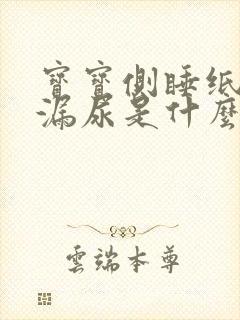 寶寶側睡纸
漏尿是什麼
雲端本尊